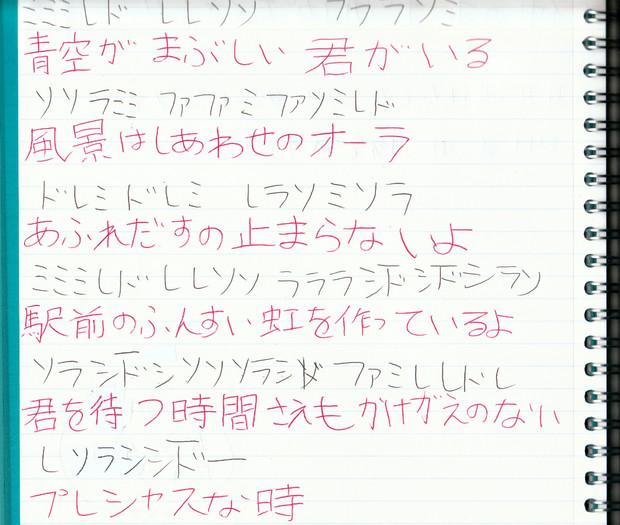 ミミミレド レレソソ ファファソミ
青空が まぶしい 君がいる
ソソラミミ ファファミファソミレド
風景はしあわせのオーラ
ドレミドレミ レラソミソラ
あふれだすの止まらないよ
ミミミレド レレソソ ラララシドシドシラソ
駅前のふんすい虹を作っているよ
ソラシドシソソソラシド ファミレレドレ
君を待つ時間さえもかけがえのない
レソラシシドー
プレシャスな時